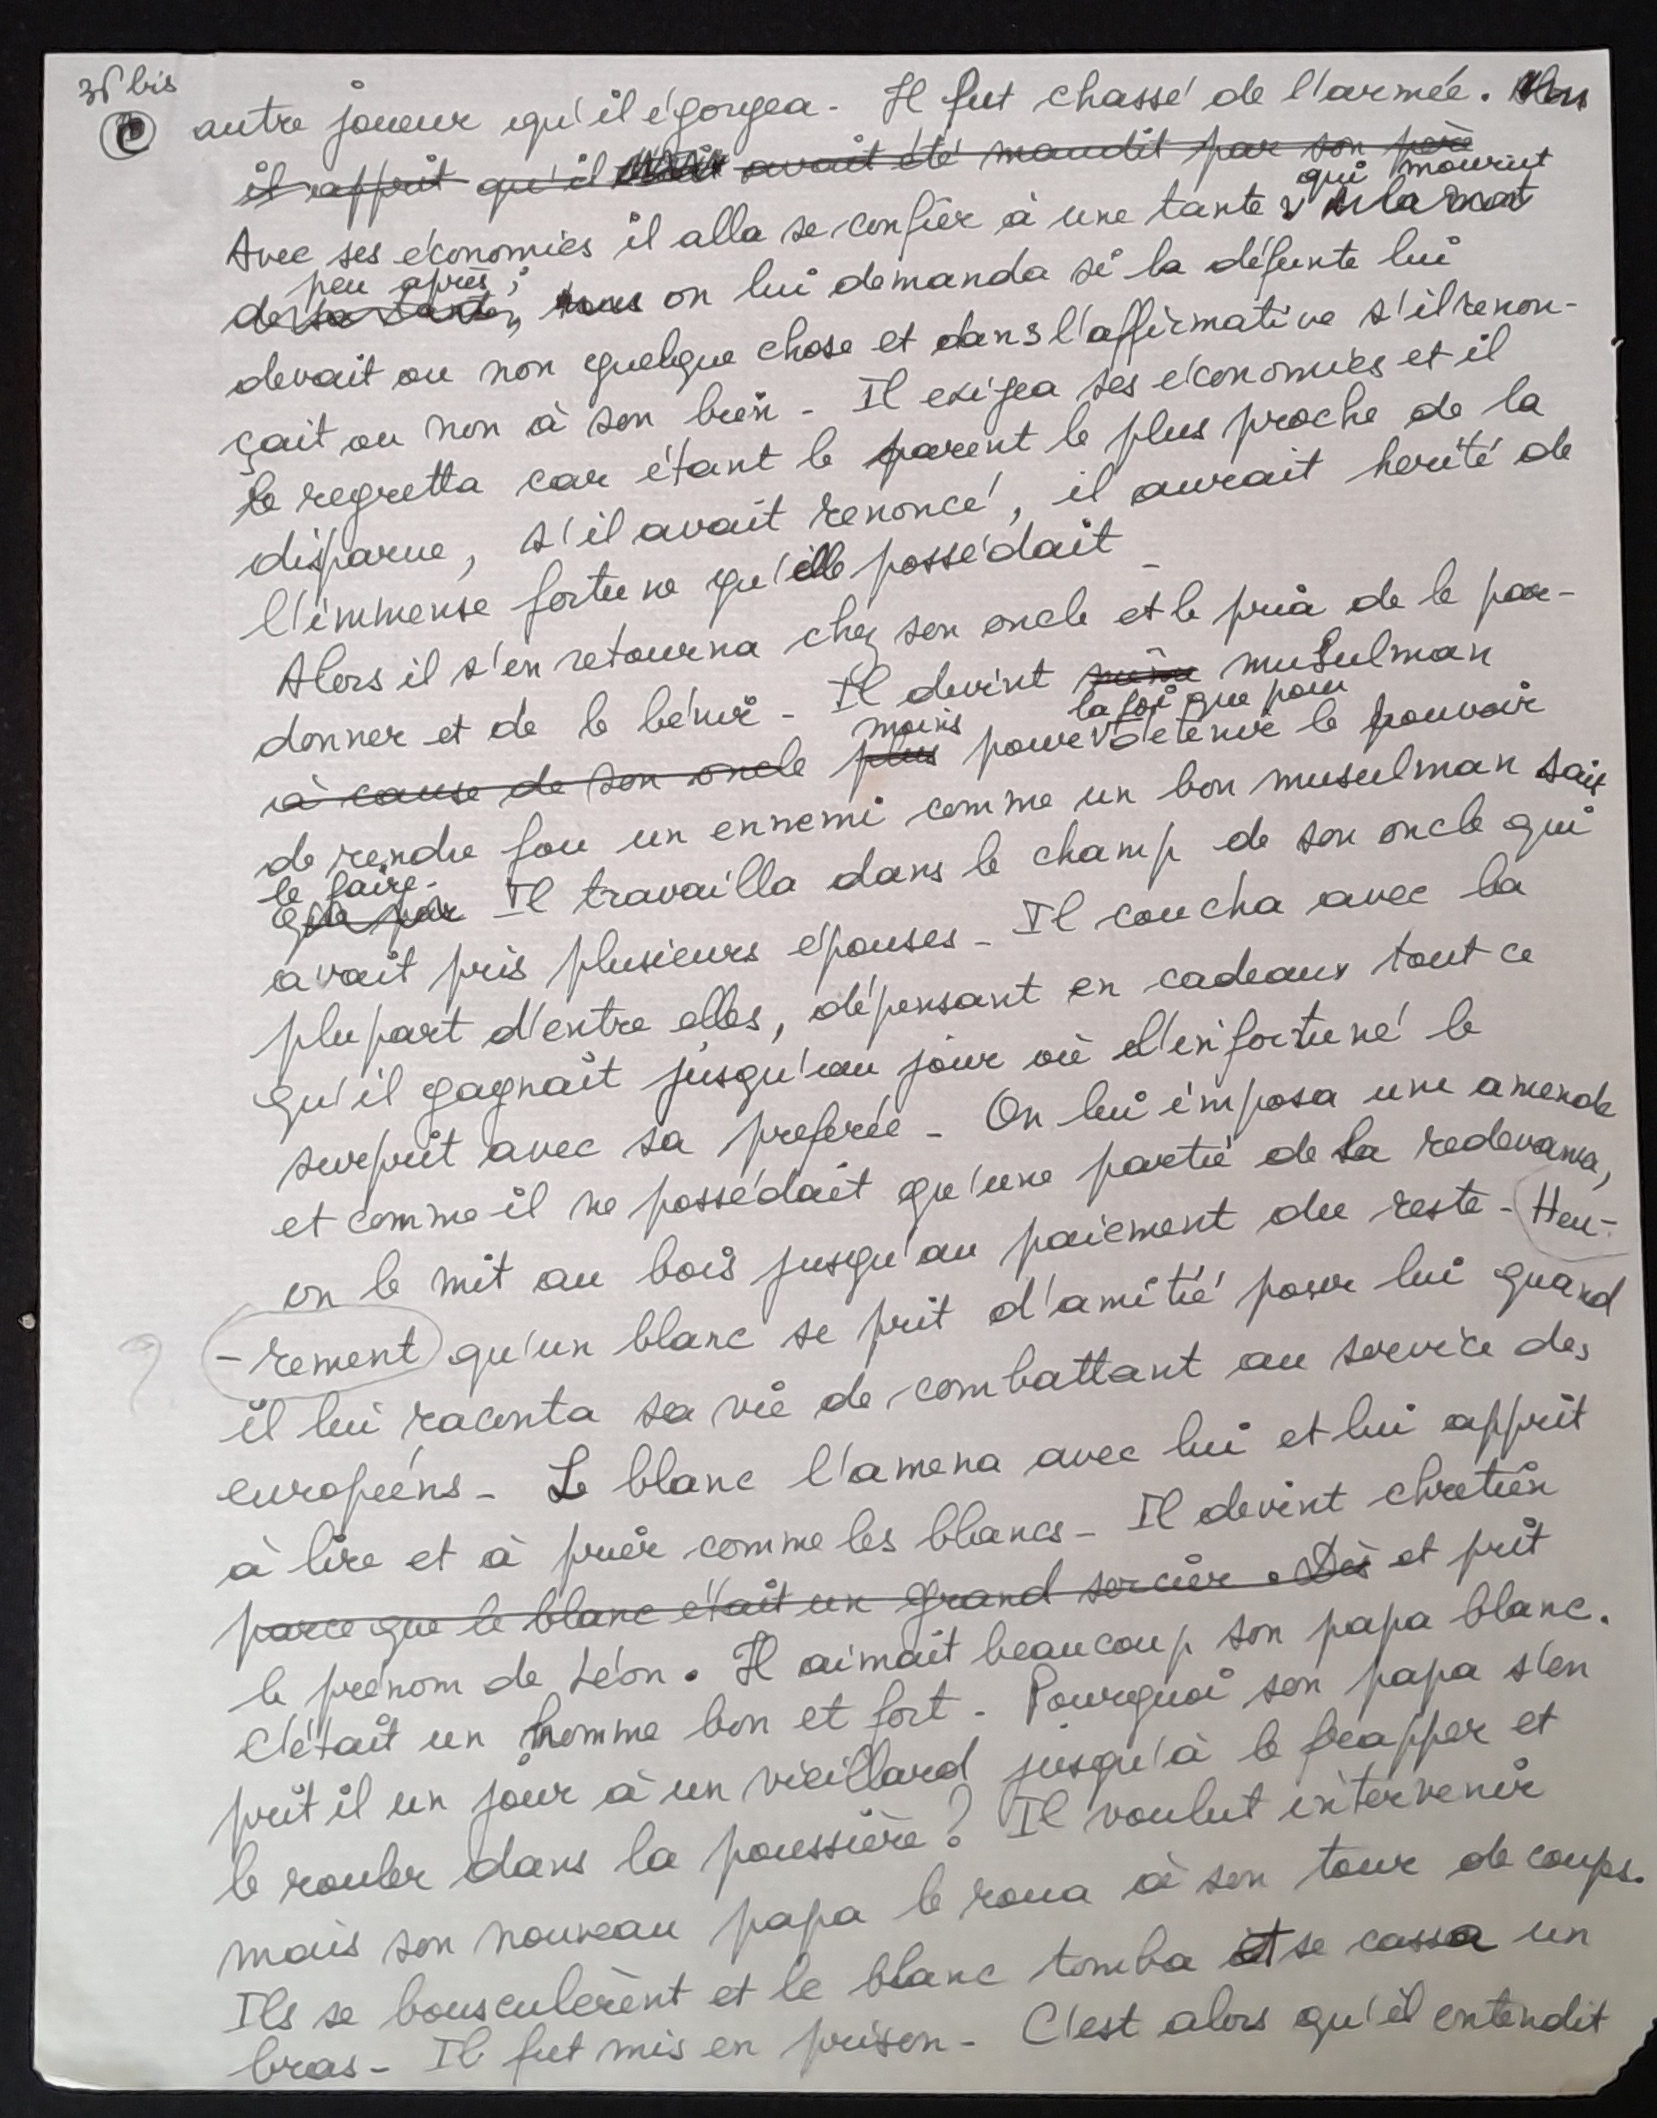 bis
autre joueur qu'il égorgea - Il fut chassé de l'armée.
il apprit qu'il avait été maudit par son père
qui mourut
Avec ses économies il alla se confier à une tante
peu après;
de sa tante, on lui demanda si la défunte lui
devait ou non quelque chose et dans l'affirmative s'il renon-
çait ou non à son bien - Il exigea ses économies et il
le regretta car étant le parent le plus proche de la
disparue, s'il avait renoncé, il aurait herité de
l'immense fortune qu'elle possédait -
Alors il s'en retourna chez son oncle et le pria de le par-
donner et de le bénir - Il devint même musulman
moins la foi que pour
à cause de son oncle plus pour détenir le pouvoir
de rendre fou un ennemi comme un bon musulman sait
le faire -
Il travailla dans le champ de son oncle qui
avait pris plusieurs épouses - Il coucha avec la
plupart d'entre elles, dépensant en cadeaux tout ce
qu'il gagnait jusqu'au jour où l'infortuné le
surprit avec sa preferée - On lui imposa une amende
et comme il ne possédait qu'une partie de la redevance,
on le mit au bois jusqu'au paiement du reste - Heu-
? -rement qu'un blanc se prit d'amitié pour lui quand
il lui raconta sa vie de combattant au service des
européens - Le blanc l'amena avec lui et lui apprit
à lire et à prier comme les blancs - Il devint chretien
parce que le blanc était un grand sorcier. Dès et prit
le prénom de Léon. Il aimait beaucoup son papa blanc.
C'était un homme bon et fort - Pourquoi son papa s'en
prit il un jour à un vieillard jusqu'à le frapper et
le rouler dans la poussière? Il voulut intervenir
mais son nouveau papa le roua à son tour de coups.
Ils se bousculèrent et le blanc tomba et se cassa un
bras - Il fut mis en prison - C'est alors qu'il entendit